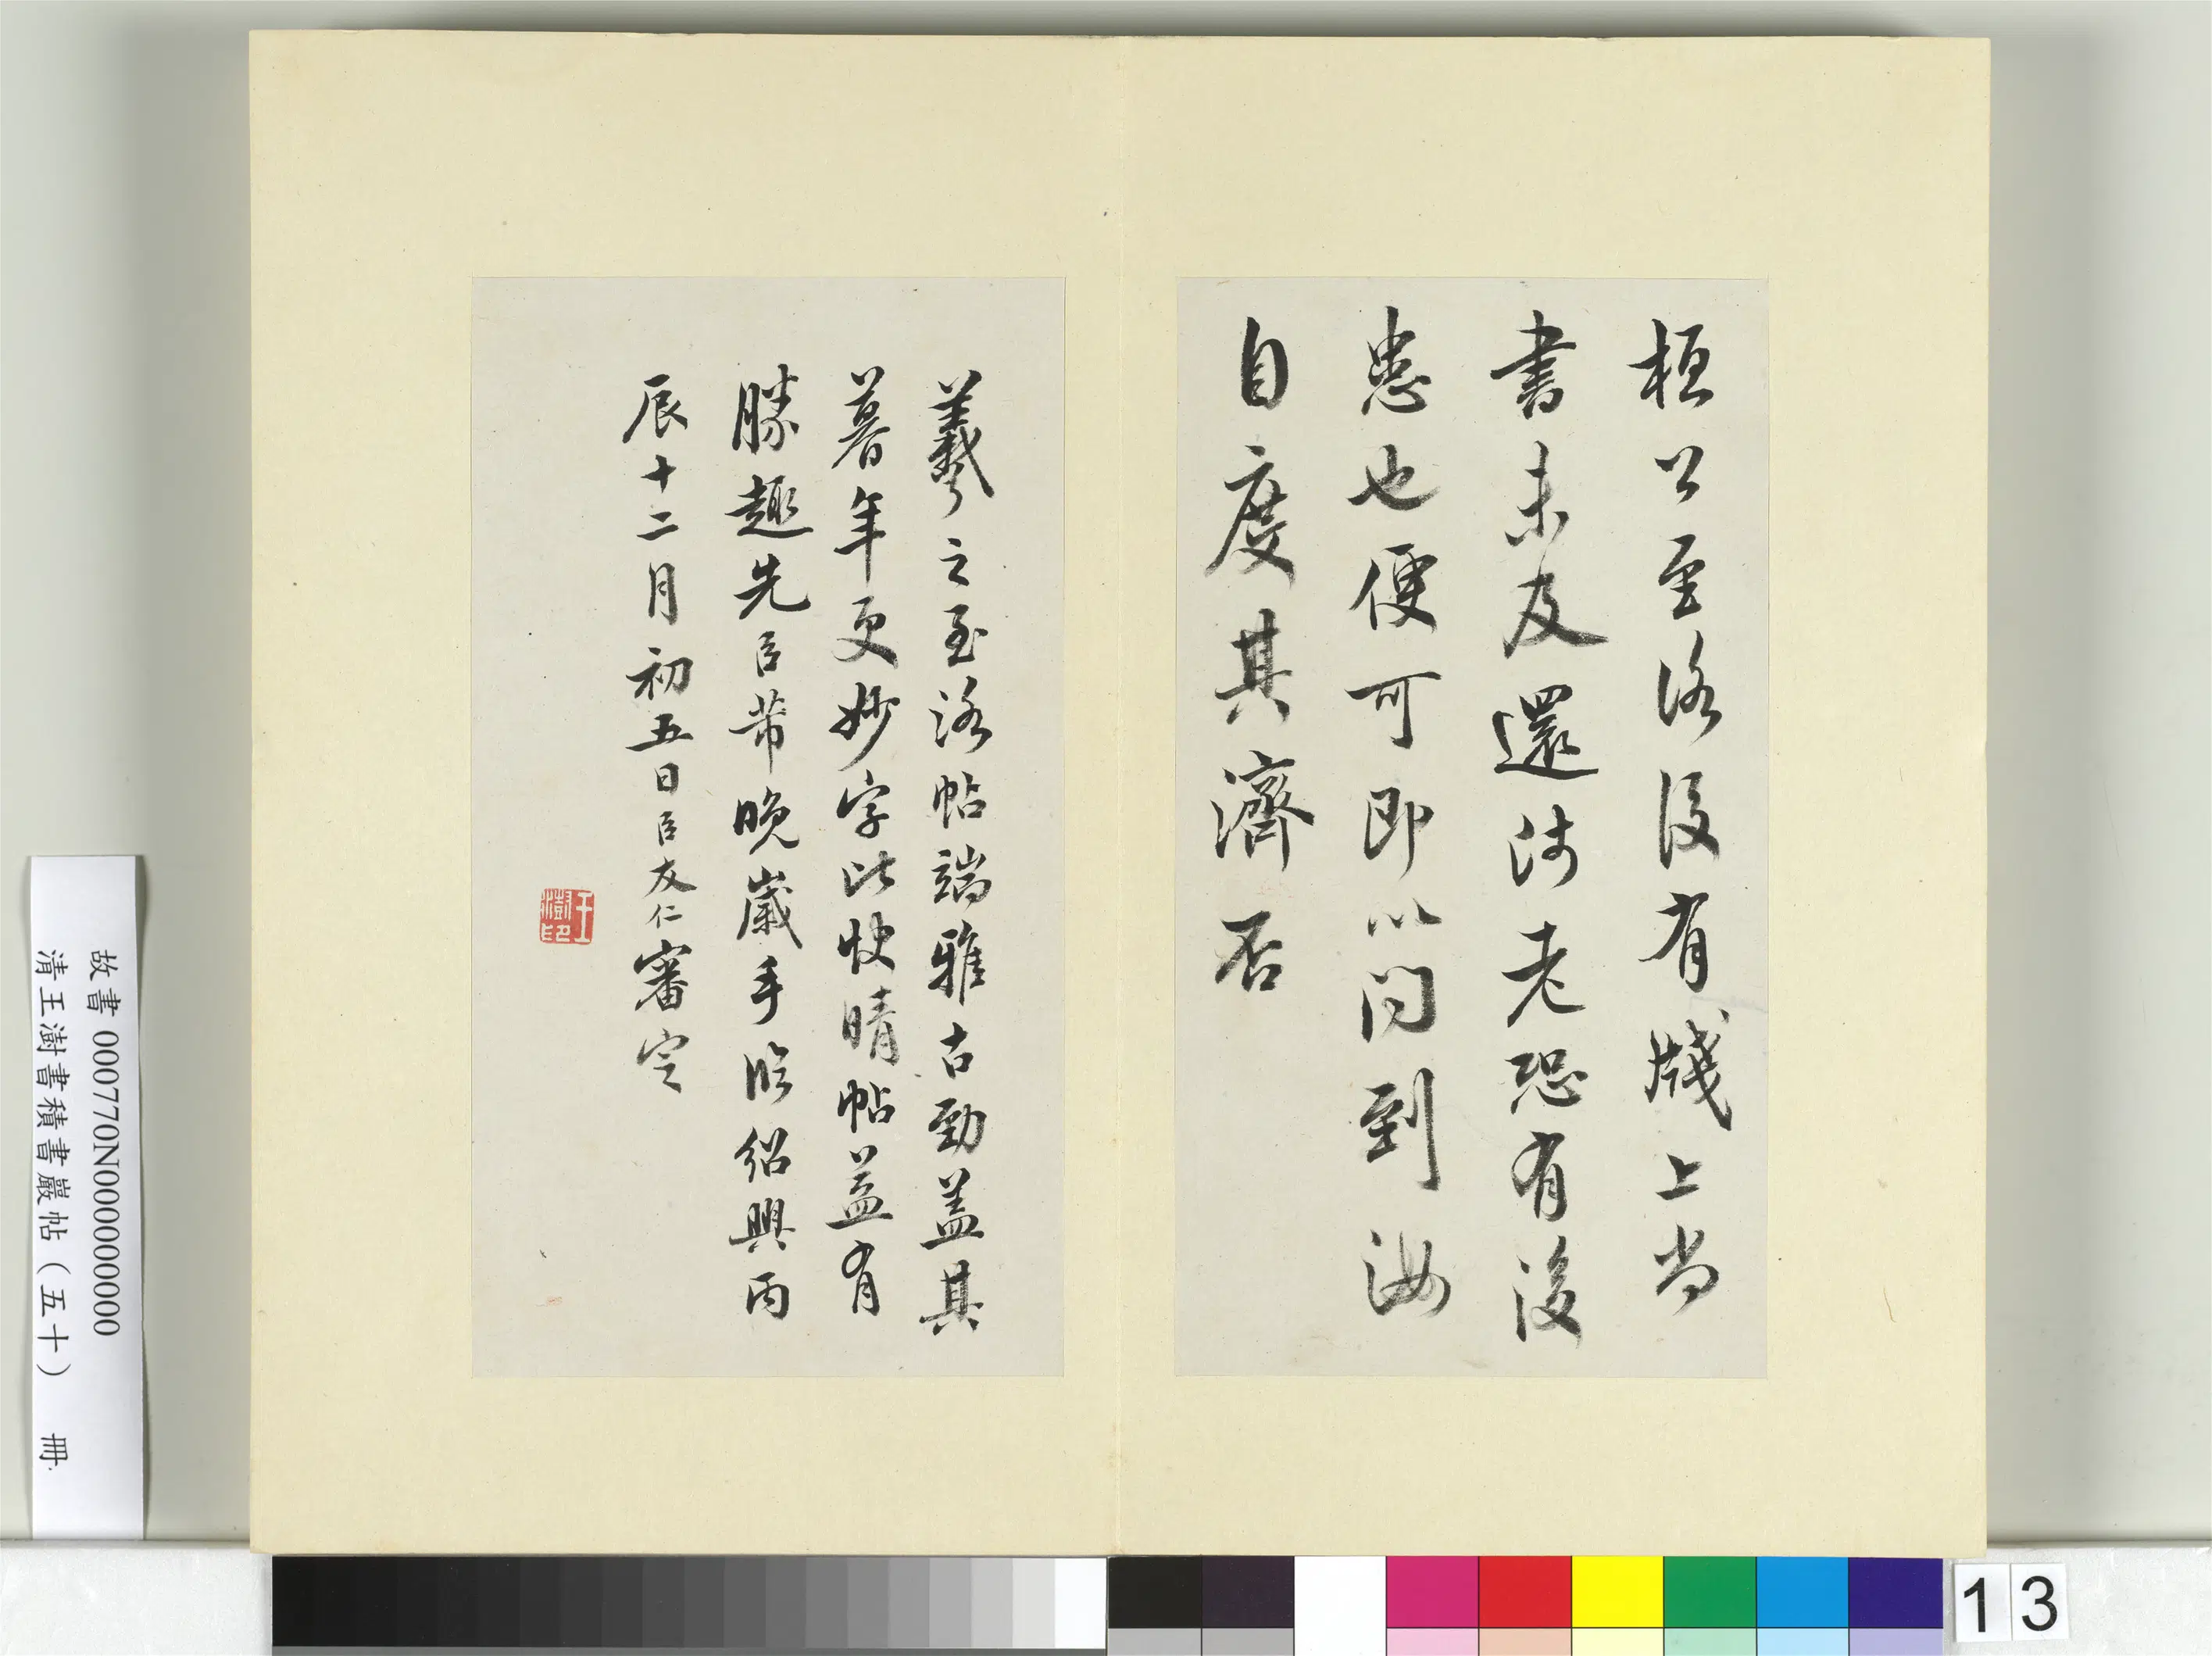 桓公至洛後有牋上尚
書未及還沛老恐有後
患也便可即以问到汝
自度其濟否
羲之至洛帖端雅古勁盖其
暮年更妙字比快晴帖益有
勝趣先臣芾晚歲手臨紹興丙
辰十二月初五日臣友仁審定
王澍印
故書 000770N000000000
清王澍書積書巖帖（五十） 冊
13